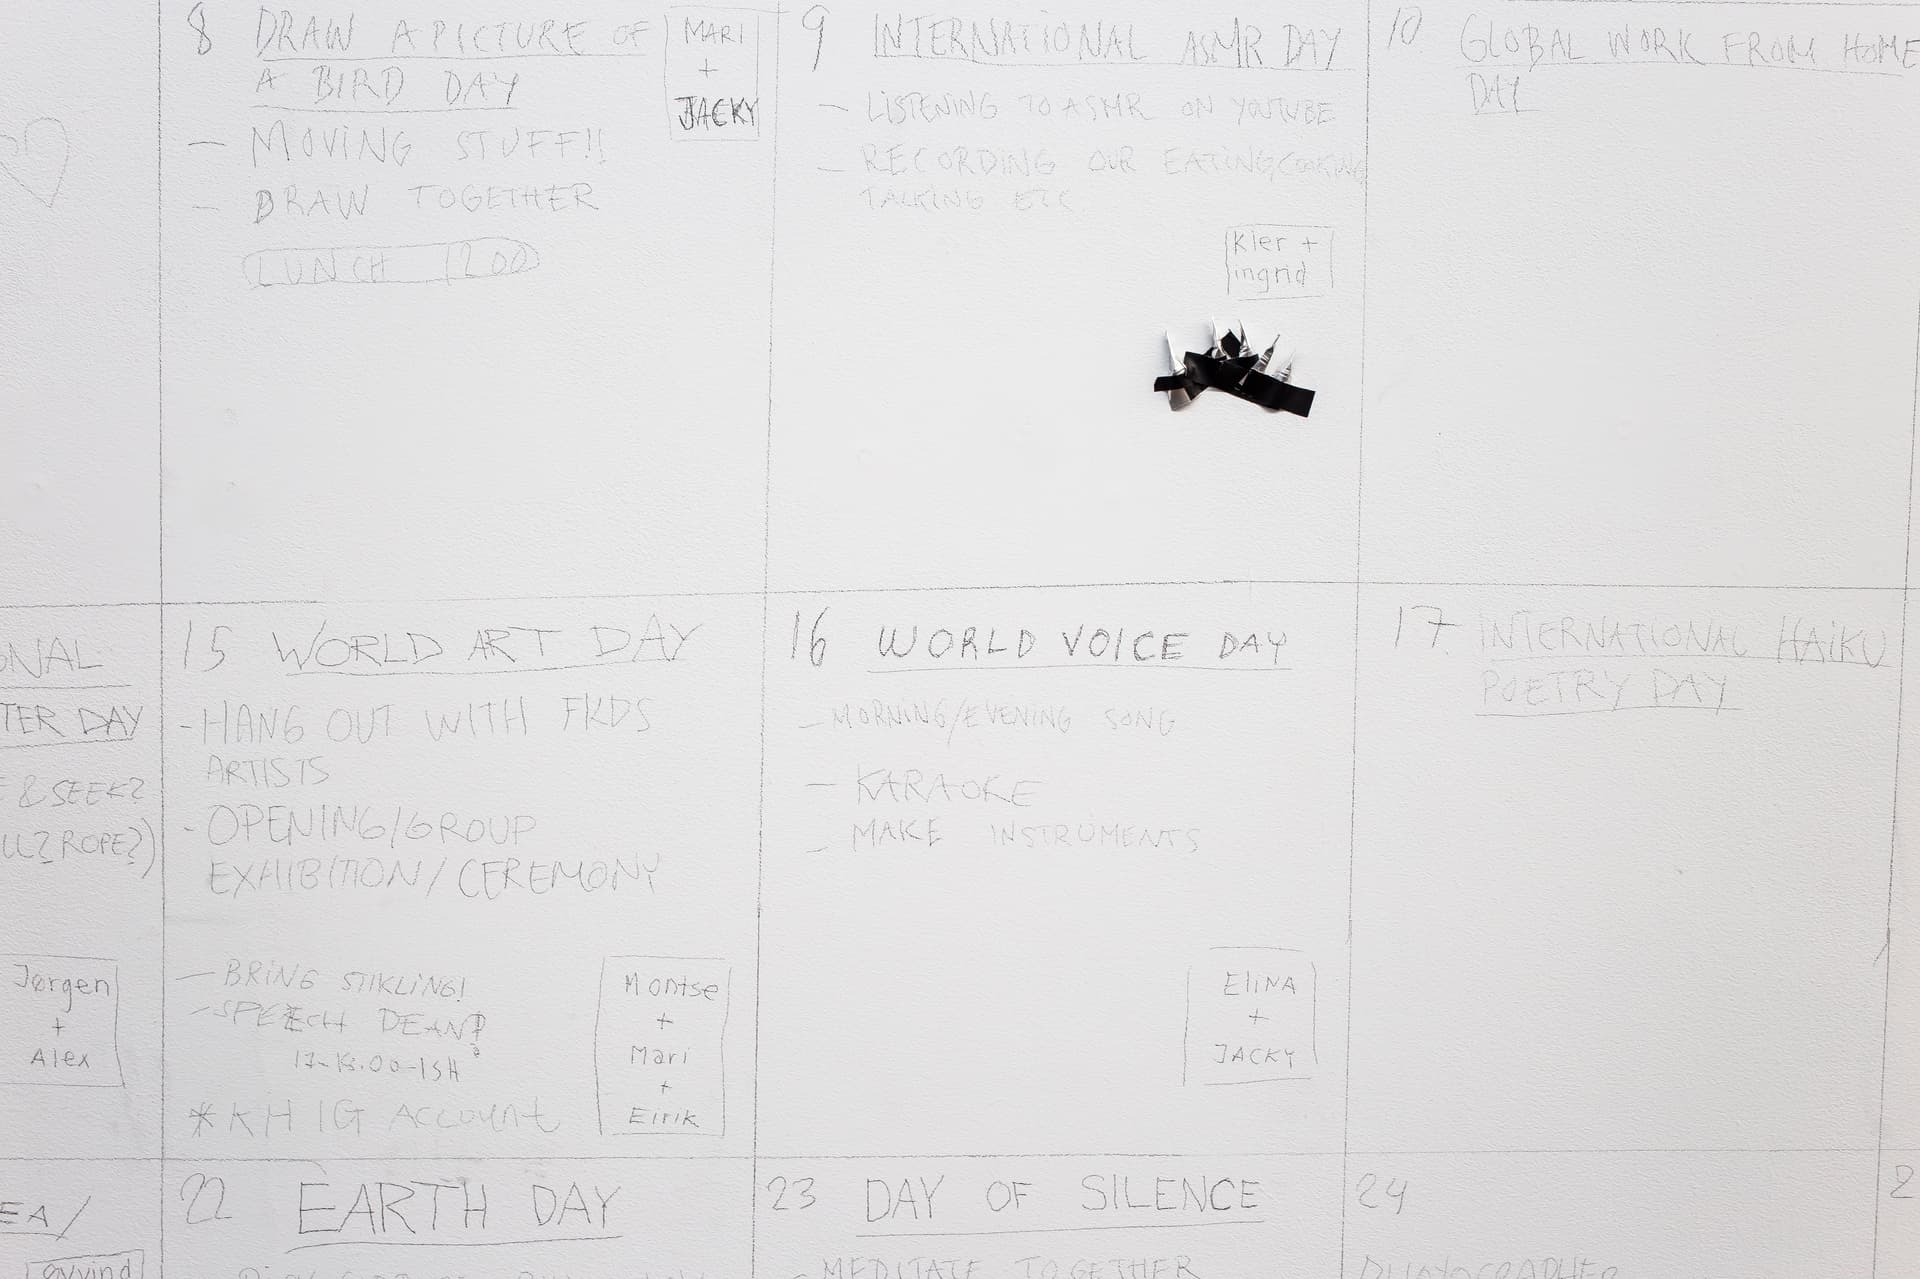 8 DRAW A PICTURE OF
A BIRD DAY
MARI
+
JACKY
— MOVING STUFF!!
— DRAW TOGETHER
LUNCH 1200
9 INTERNATIONAL ASMR DAY
— LISTENING TO ASMR ON YOUTUBE
— RECORDING OUR EATING/COOKING
TALKING ETC
Kier +
ingrid
10 GLOBAL WORK FROM HOME
DAY
ONAL
TER DAY
E & SEEK?
ROPE?)
Jørgen
+
Alex
15 WORLD ART DAY
- HANG OUT WITH FKDS
ARTISTS
- OPENING/GROUP
EXHIBITION/CEREMONY
— BRING STIKLING!
— SPEECH DEAN?
* KH IG ACCOUNT
Montse
+
Mari
+
Eirik
16 WORLD VOICE DAY
— MORNING/EVENING SONG
— KARAOKE
— MAKE INSTRUMENTS
ELINA
+
JACKY
17 INTERNATIONAL HAIKU
POETRY DAY
EA/
øyvind
22 EARTH DAY
23 DAY OF SILENCE
- MEDITATE TOGETHER
24
2